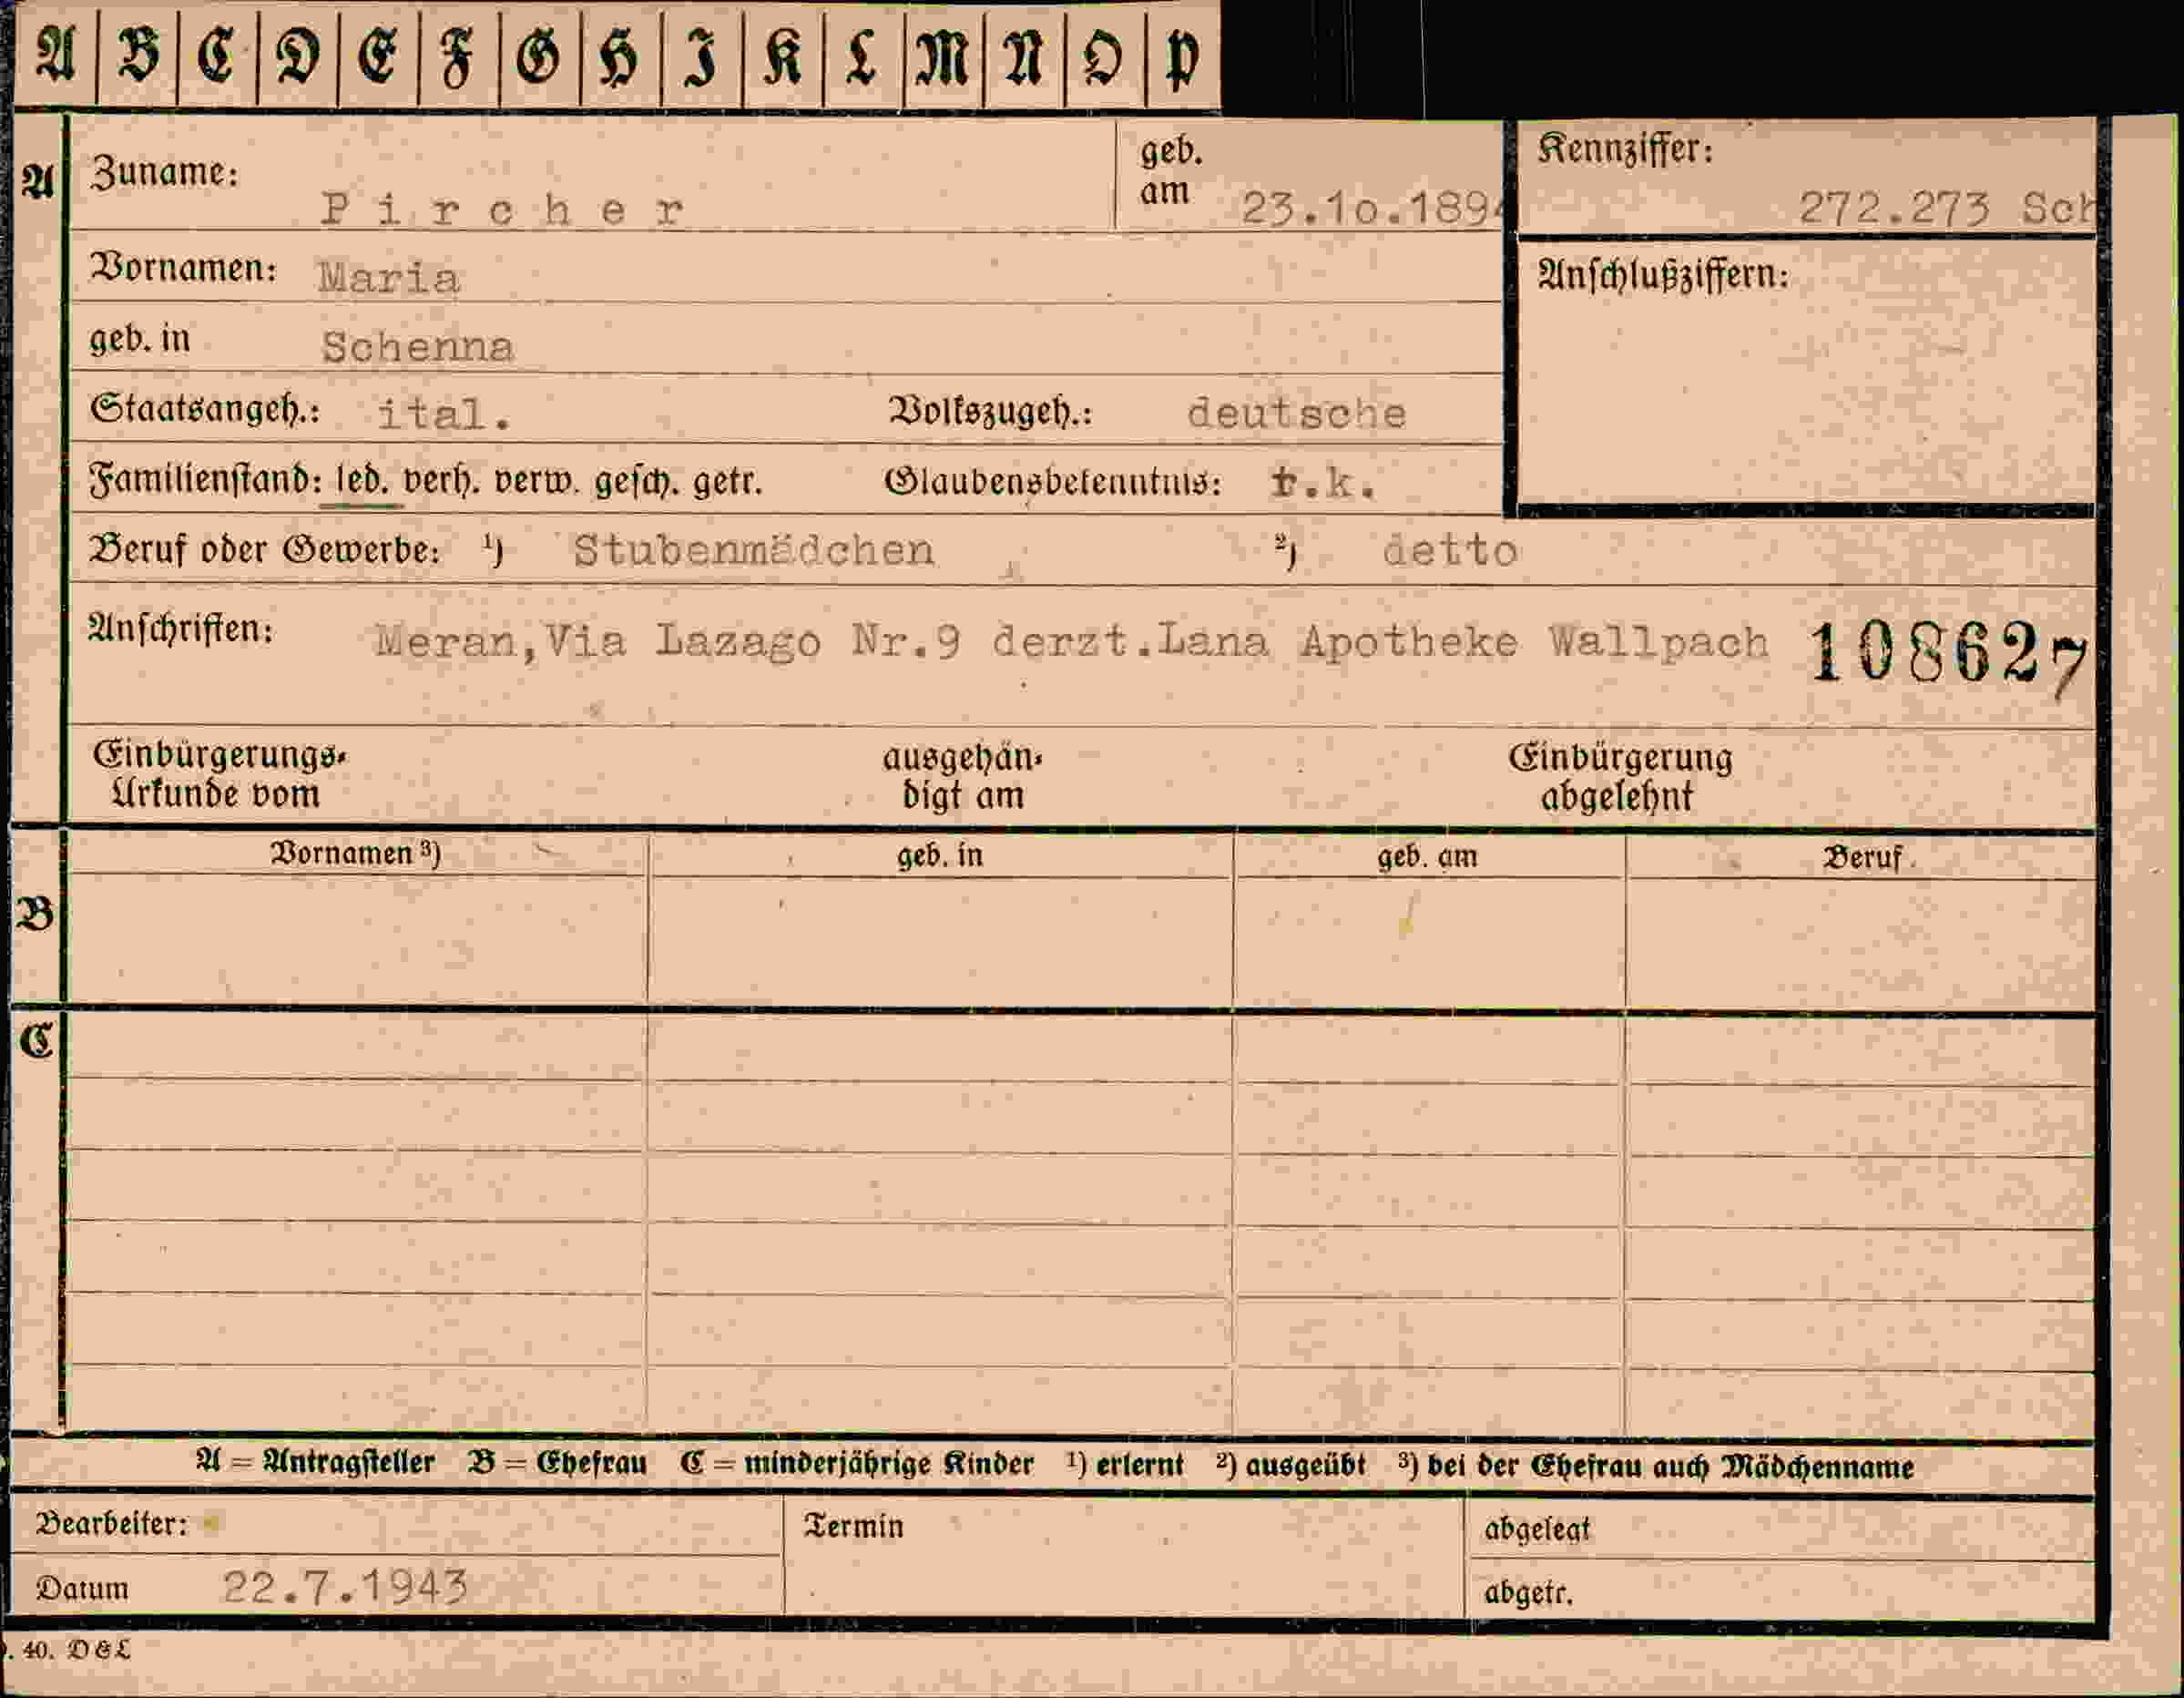 A B C D E F G H I K L M N O P
A Zuname: Pircher geb. am 23.10.1894 Kennziffer: 272.273 Sch
Vornamen: Maria Anschlußziffern:
geb. in Schenna
Staatsangeh.: ital. Volkszugeh.: deutsche
Familienstand: led. verh. verw. gesch. getr. Glaubensbekenntnis: r.k.
Beruf oder Gewerbe: ¹) Stubenmädchen ²) detto
Anschriften: Meran,Via Lazago Nr.9 derzt.Lana Apotheke Wallpach 108627
Einbürgerungs- ausgehän- Einbürgerung
Urkunde vom digt am abgelehnt
Vornamen ³) geb. in geb. am Beruf
B
C
A = Antragsteller B = Ehefrau C = minderjährige Kinder ¹) erlernt ²) ausgeübt ³) bei der Ehefrau auch Mädchenname
Bearbeiter: Termin abgelegt
Datum 22.7.1943 abgetr.
. 40. D & L